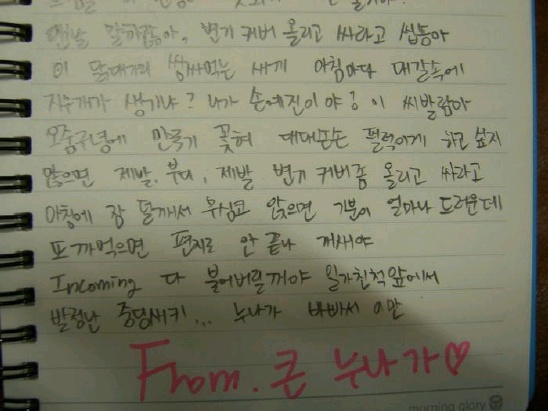 맨날 말하잖아, 변기 커버 올리고 싸라고 씹놈아
이 닭대가리 쌈싸먹는 새끼 아침마다 대갈속에
지우개가 생기냐? 내가 손예진이야? 이 씨발람아
오줌구녕에 만국기 꽂혀 대대손손 펄럭이게 하고 싶지
않으면 제발, 부디, 제발 변기 커버좀 올리고 싸라고
아침에 잠 덜깨서 무심코 앉으면 기분이 얼마나 드러운데
또 까먹으면 편지로 안 끝나 개새야
Incoming 다 불어버릴꺼야 일가친척앞에서
발정난 중딩새키... 누나가 바빠서 이만
From. 큰 누나가♡
morning glory